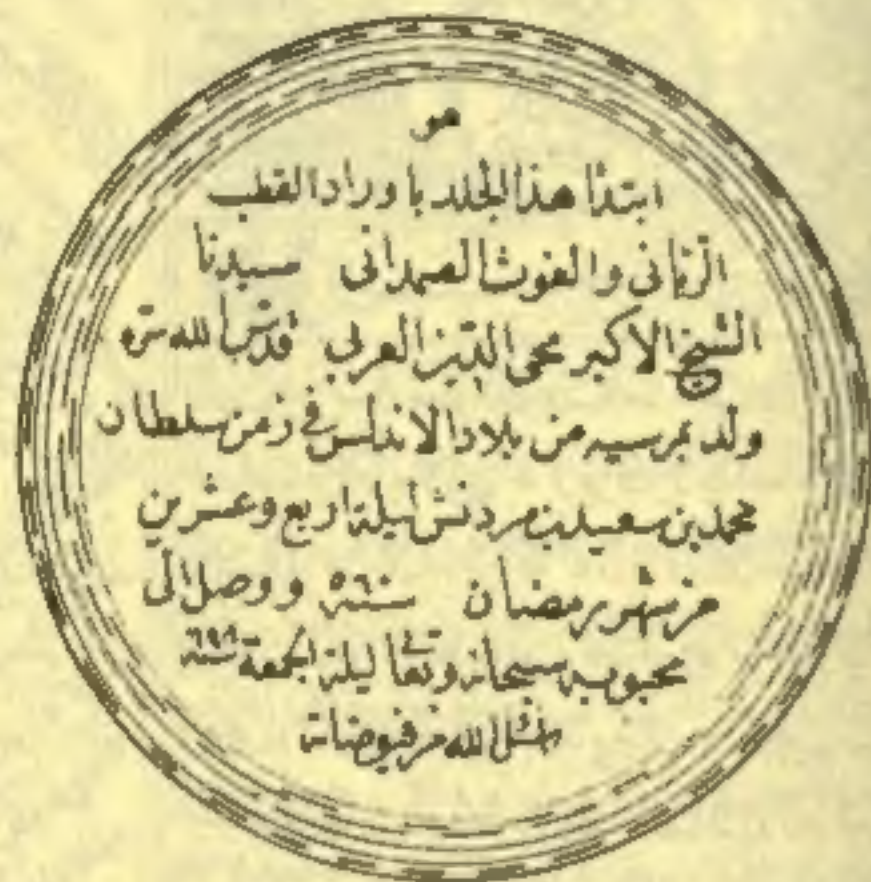 هو
ابتدأ هذا الجلد باوراد القطب
الربانى والغوث الصمدانى سيدنا
الشيخ الاكبر محى الدين العربي قدس الله سره
ولد بمرسيه من بلاد الاندلس في زمن سلطان
محمد بن سعيد بن مردنش ليلة اربع وعشرين
من شهر رمضان سنة ٥٦٠ ووصل الى
محبوبه سبحانه وتعالى ليلة الجمعة سنة
الله من فيوضاته